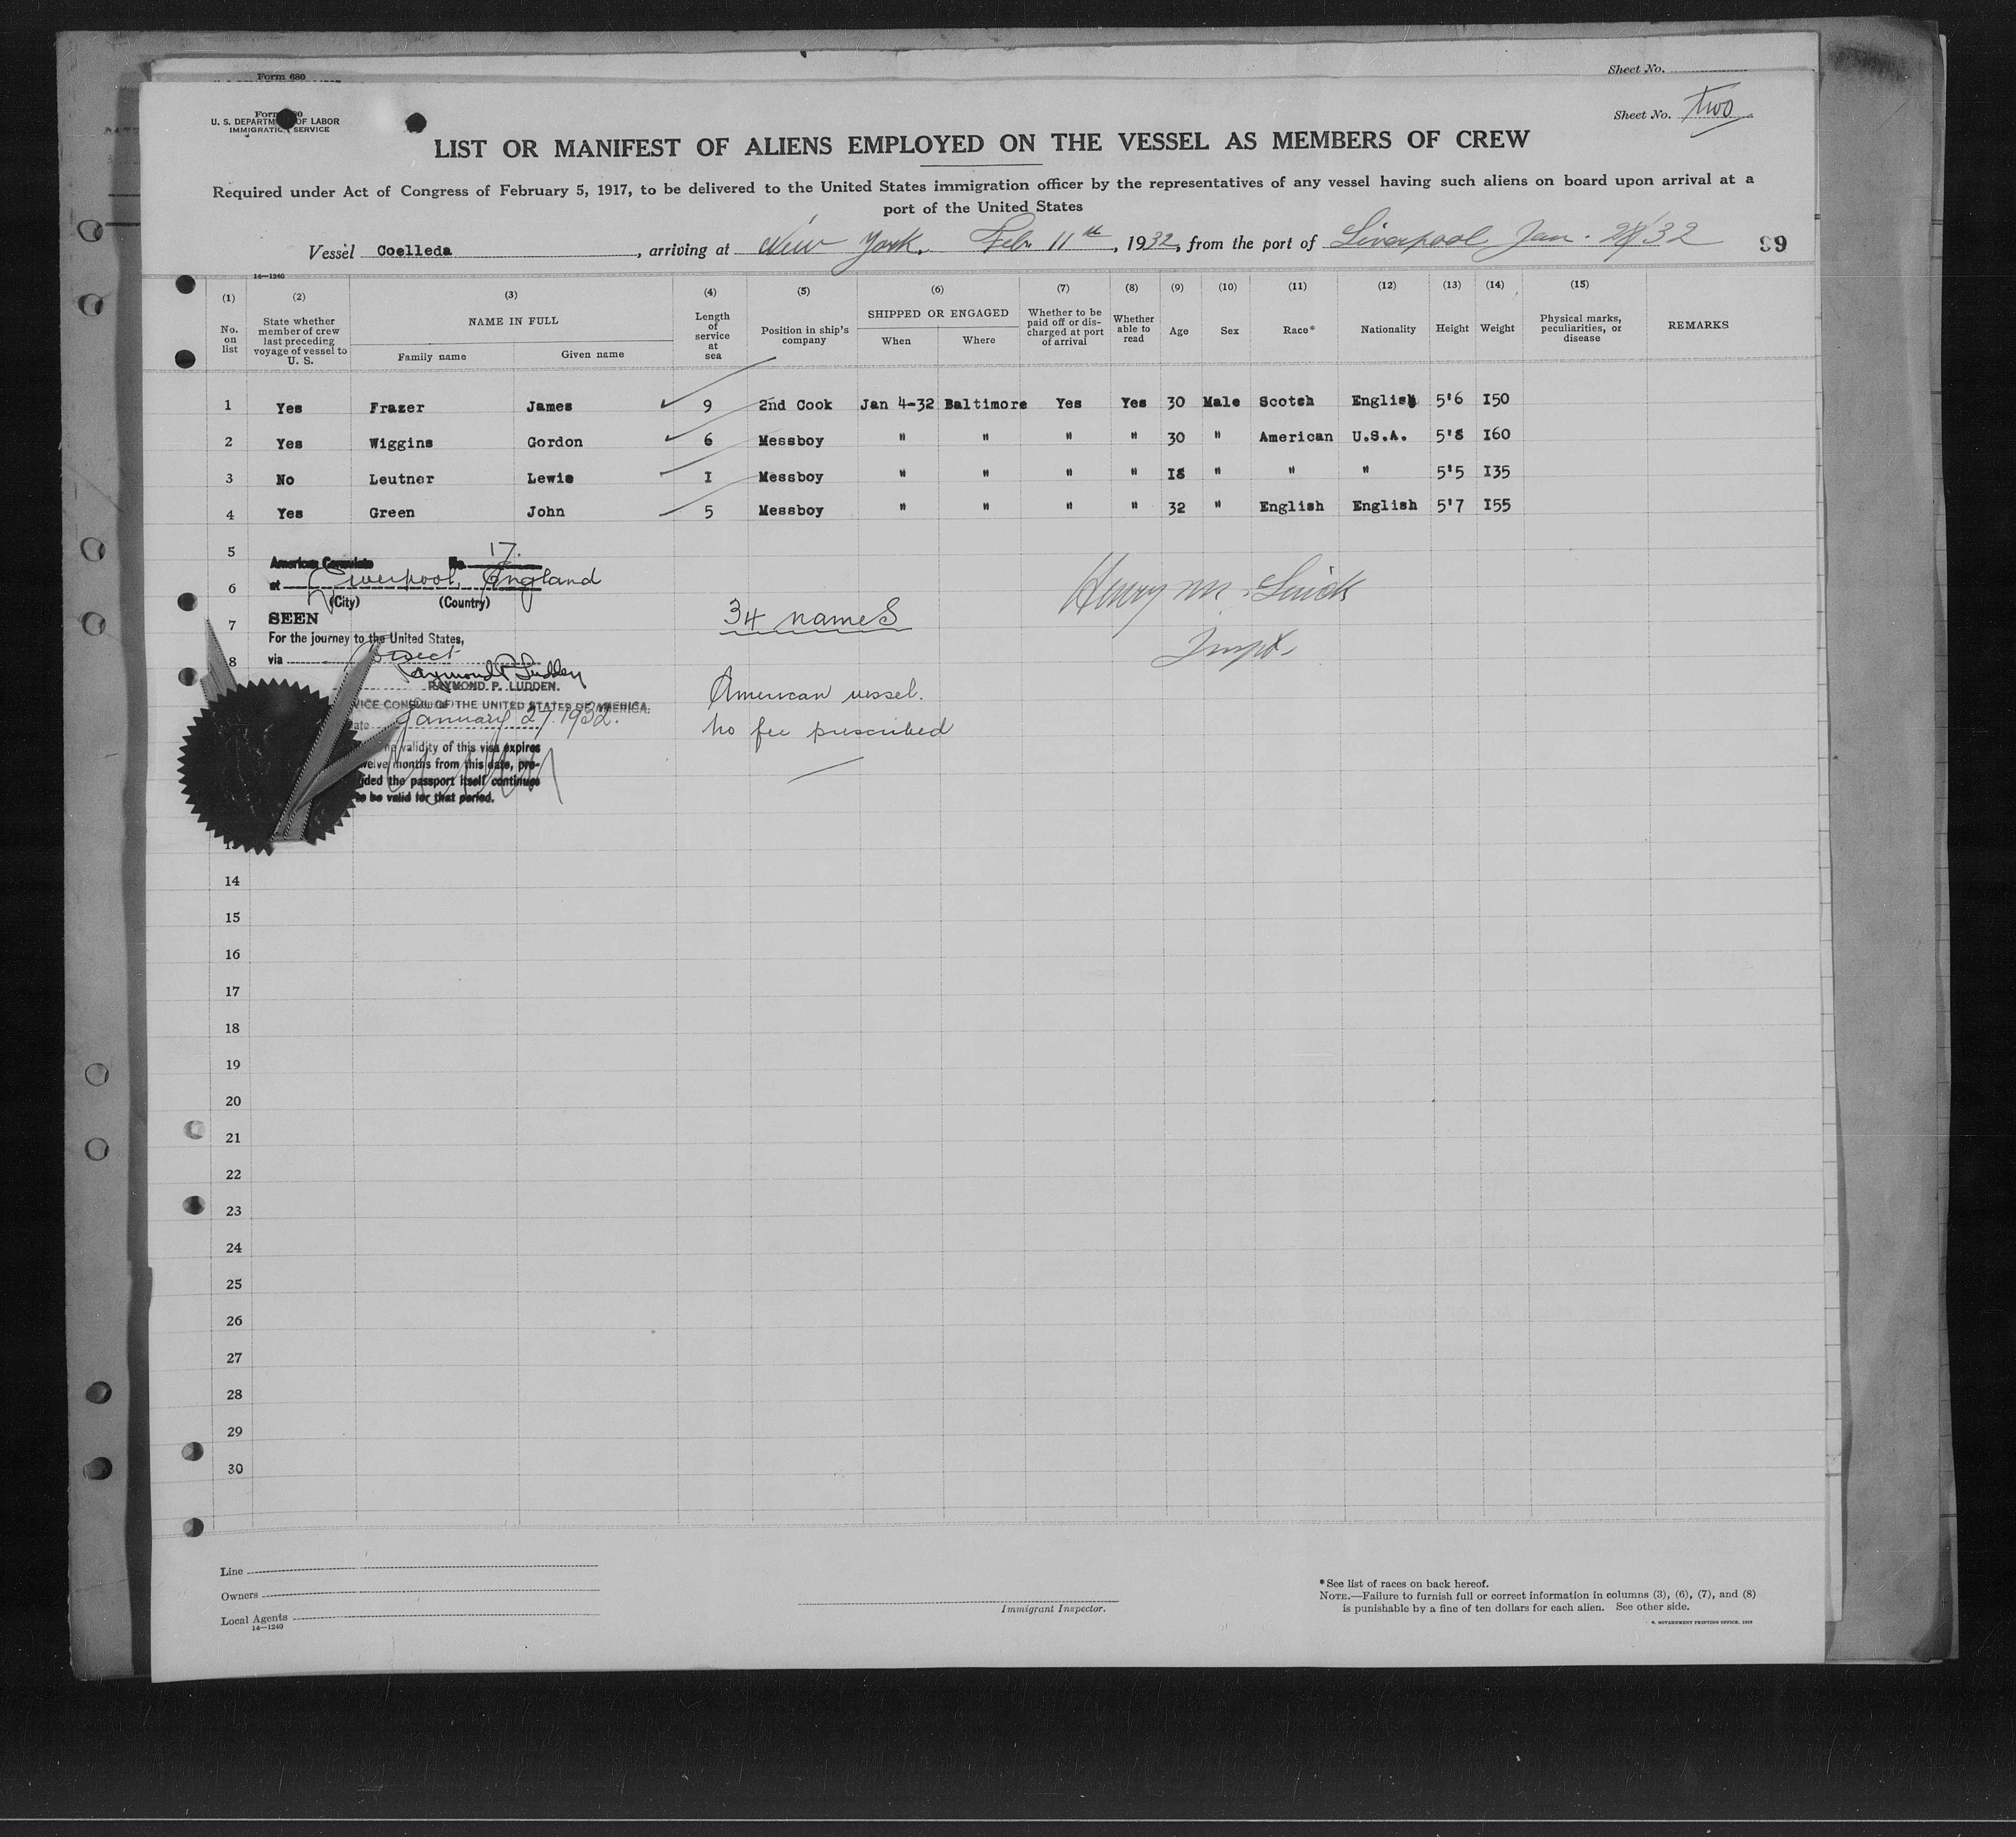 Form 680
Sheet No.
Form
U. S. DEPARTMENT OF LABOR
IMMIGRATION SERVICE
Sheet No. Two
LIST OR MANIFEST OF ALIENS EMPLOYED ON THE VESSEL AS MEMBERS OF CREW
Required under Act of Congress of February 5, 1917, to be delivered to the United States immigration officer by the representatives of any vessel having such aliens on board upon arrival at a
port of the United States
Vessel Coelleda, arriving at New York. Feb. 11th, 1932, from the port of Liverpool Jan. 28/32 99
14—1240
(1) (2) (3) (4) (5) (6) (7) (8) (9) (10) (11) (12) (13) (14) (15)
No. on list State whether member of crew last preceding voyage of vessel to U. S. NAME IN FULL Length of service at sea Position in ship's company SHIPPED OR ENGAGED Whether to be paid off or discharged at port of arrival Whether able to read Age Sex Race* Nationality Height Weight Physical marks, peculiarities, or disease REMARKS
Family name Given name When Where
1 Yes Frazer James 9 2nd Cook Jan 4-32 Baltimore Yes Yes 30 Male Scotch English 5'6 I50
2 Yes Wiggins Gordon 6 Messboy " " " " 30 " American U.S.A. 5'8 I60
3 No Leutner Lewis I Messboy " " " " I8 " " " 5'5 I35
4 Yes Green John 5 Messboy " " " " 32 " English English 5'7 I55
5
American Consulate No. 17.
6
at Liverpool, England
(City) (Country)
7
SEEN
34 names
For the journey to the United States,
8
via Direct
Raymond P. Ludden
RAYMOND P. LUDDEN.
VICE CONSUL OF THE UNITED STATES OF AMERICA.
Date January 27. 1932.
American vessel.
no fee prescribed
The validity of this visa expires
twelve months from this date, pro-
vided the passport itself continues
to be valid for that period.
Henry M.
Inspt.
13
14
15
16
17
18
19
20
21
22
23
24
25
26
27
28
29
30
Line
Owners
Local Agents
14—1240
Immigrant Inspector.
*See list of races on back hereof.
NOTE.—Failure to furnish full or correct information in columns (3), (6), (7), and (8)
is punishable by a fine of ten dollars for each alien. See other side.
GOVERNMENT PRINTING OFFICE